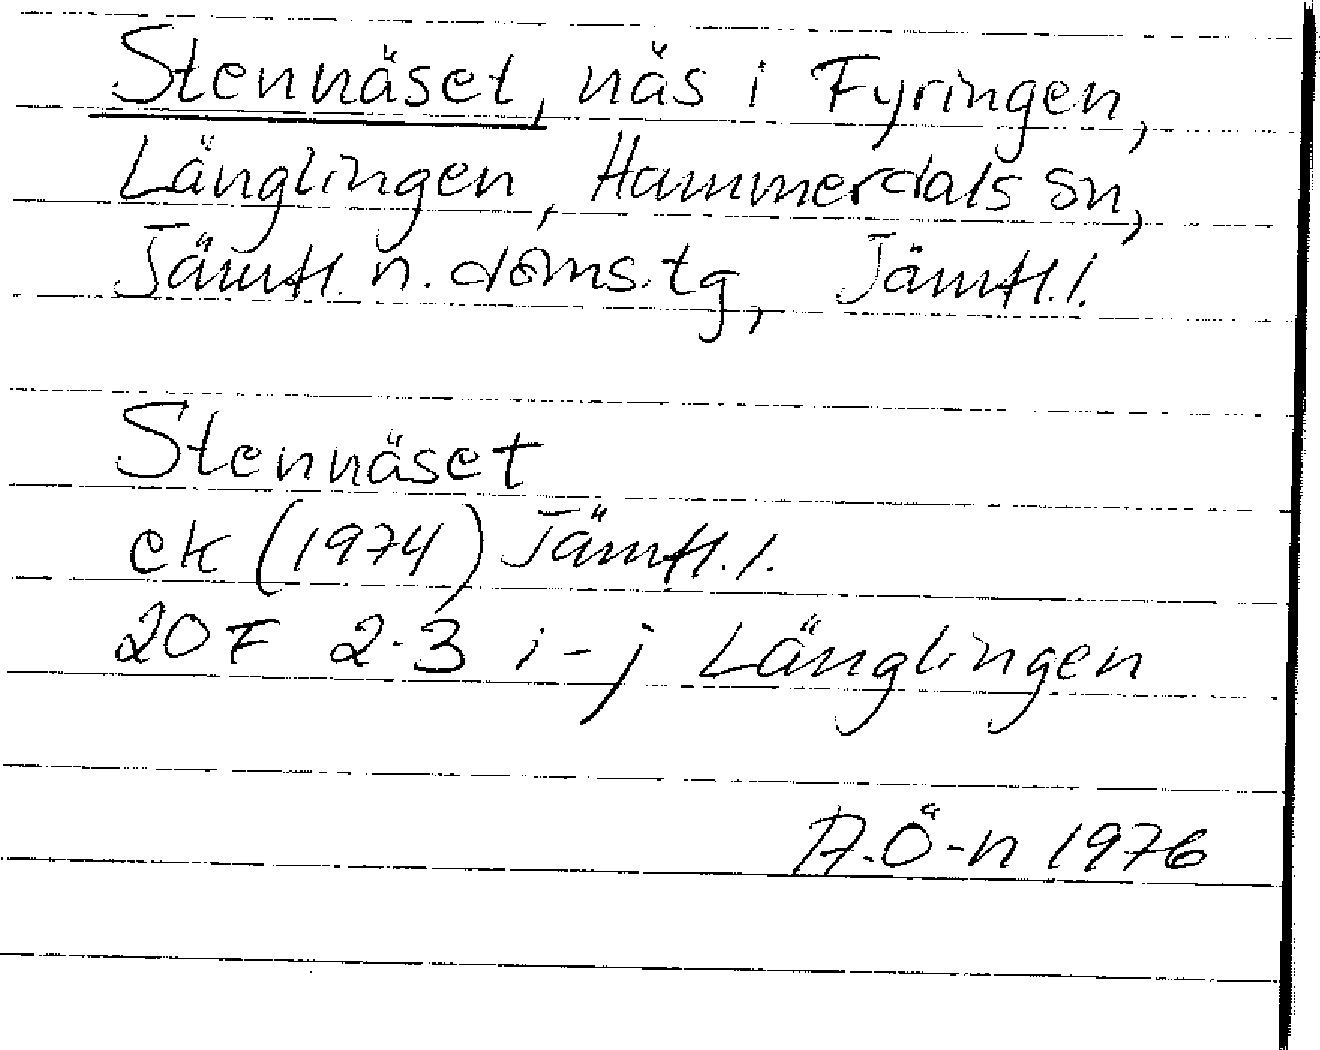 Stennäset, näs i Fyringen,
Länglingen, Hammerdals sn,
Jämtl. n. doms. tg, Jämtl. l.
Stennäset
ek (1974) Jämtl. l.
20F 2-3 i-j Länglingen
A.Ö-n 1976